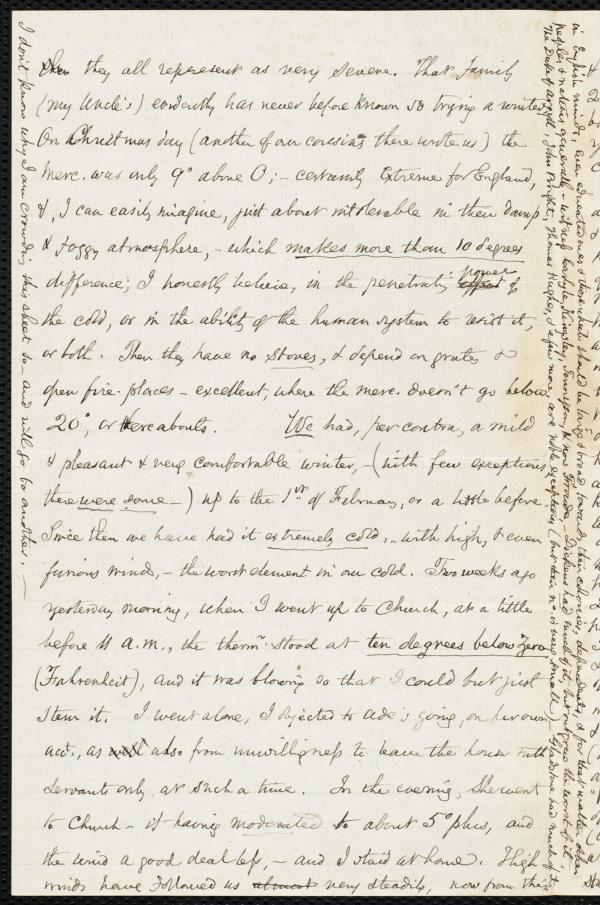 then they all represent as very severe. That family
(my Uncle's) evidently has never before known so trying a winter.
On Christmas day (another of our cousins there wrote us) the
merc. was only 9° above 0; - certainly extreme for England,
&, I can easily imagine, just about intolerable in their damp
& foggy atmosphere, - which makes more than 10 degrees
difference; I honestly believe, in the penetrating power of
the cold, or in the ability of the human system to resist it,
or both. Then they have no stoves, & depend on grates &
open fire-places - excellent, where the merc. doesn't go below
20°, or thereabouts. We had, per contra, a mild
& pleasant & very comfortable winter, - (with few exceptions
there were some -) up to the 1st of February, or a little before.
Since then we have had it extremely cold, - with high, & even
furious winds, - the worst element in our cold. Two weeks ago
yesterday morning, when I went up to Church, at a little
before 11 a.m., the therm. stood at ten degrees below Zero
(Fahrenheit), and it was blowing so that I could but just
stem it. I went alone, I objected to going, on her own
acct., as also from unwillingness to leave the house with
servants only at such a time. In the evening, She went
to Church - it having moderated to about 5° plus, and
the wind a good deal less, - and I staid at home. High
winds have followed us almost very steadily, now from this
I don't know why I am crowding this sheet so - and will go to another. -
in English minds, even educated ones & those which should be large & broad towards their colonies, dependents, & for that matter other
peoples & nations generally - witness Carlyle, Kingsley, Tennyson, & now Froude, - Dickens had much of it, but outgrew the worst of it.
The Duke of Argyll, John Bright, Thomas Hughes, & a few more, are noble exceptions (but their no. is very small). Gladstone had much of it